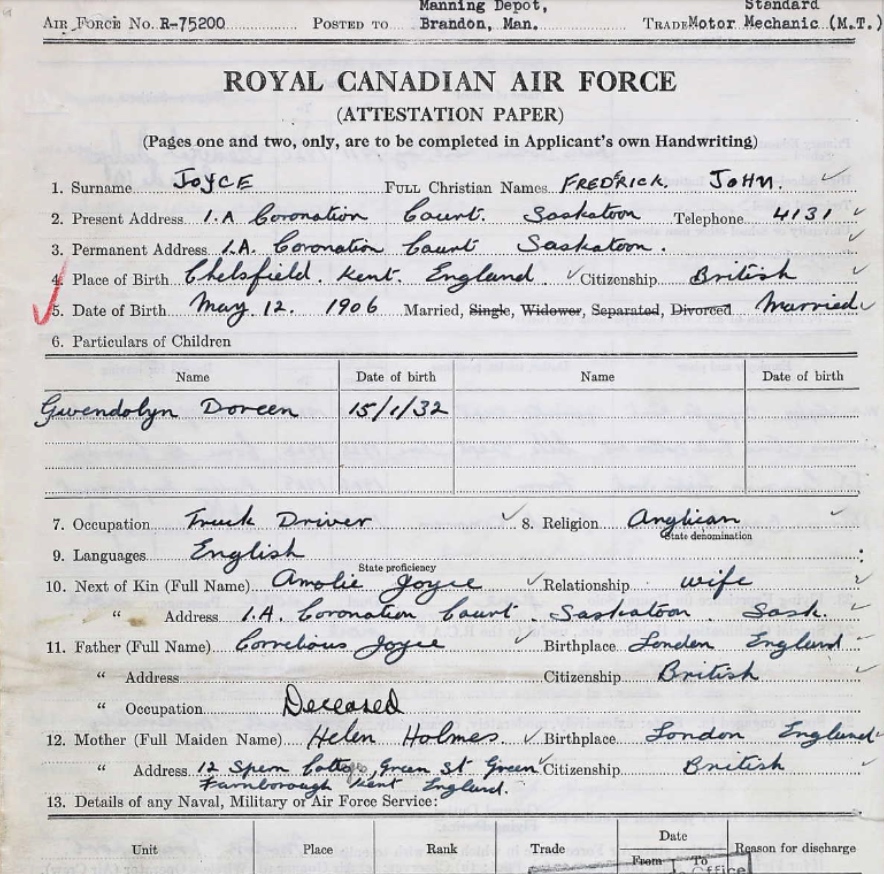 Manning Depot, Standard
AIR FORCE NO. R-75200 POSTED TO Brandon, Man. TRADE Motor Mechanic (M.T.)
ROYAL CANADIAN AIR FORCE
(ATTESTATION PAPER)
(Pages one and two, only, are to be completed in Applicant's own Handwriting)
1. Surname JOYCE FULL Christian Names FREDERICK. JOHN.
2. Present Address 1.A Coronation Court. Saskatoon Telephone 4131
3. Permanent Address 1.A. Coronation Court Saskatoon.
4. Place of Birth Chelsfield. Kent. England. Citizenship British
5. Date of Birth May 12. 1906 Married, Single, Widower, Separated, Divorced Married
6. Particulars of Children
Name Date of birth Name Date of birth
Gwendolyn Doreen 15/1/32
7. Occupation Truck Driver 8. Religion Anglican
State denomination
9. Languages English
State proficiency
10. Next of Kin (Full Name) Amelie Joyce Relationship wife
" Address 1.A. Coronation Court. Saskatoon. Sask.
11. Father (Full Name) Cornelious Joyce Birthplace London England
" Address Citizenship British
" Occupation Deceased
12. Mother (Full Maiden Name) Helen Holmes. Birthplace London England
" Address 12 Spern Cottgs, Green St Green Citizenship British
Farnborough Kent England.
13. Details of any Naval, Military or Air Force Service:
Unit Place Rank Trade Date Reason for discharge
From To
Office